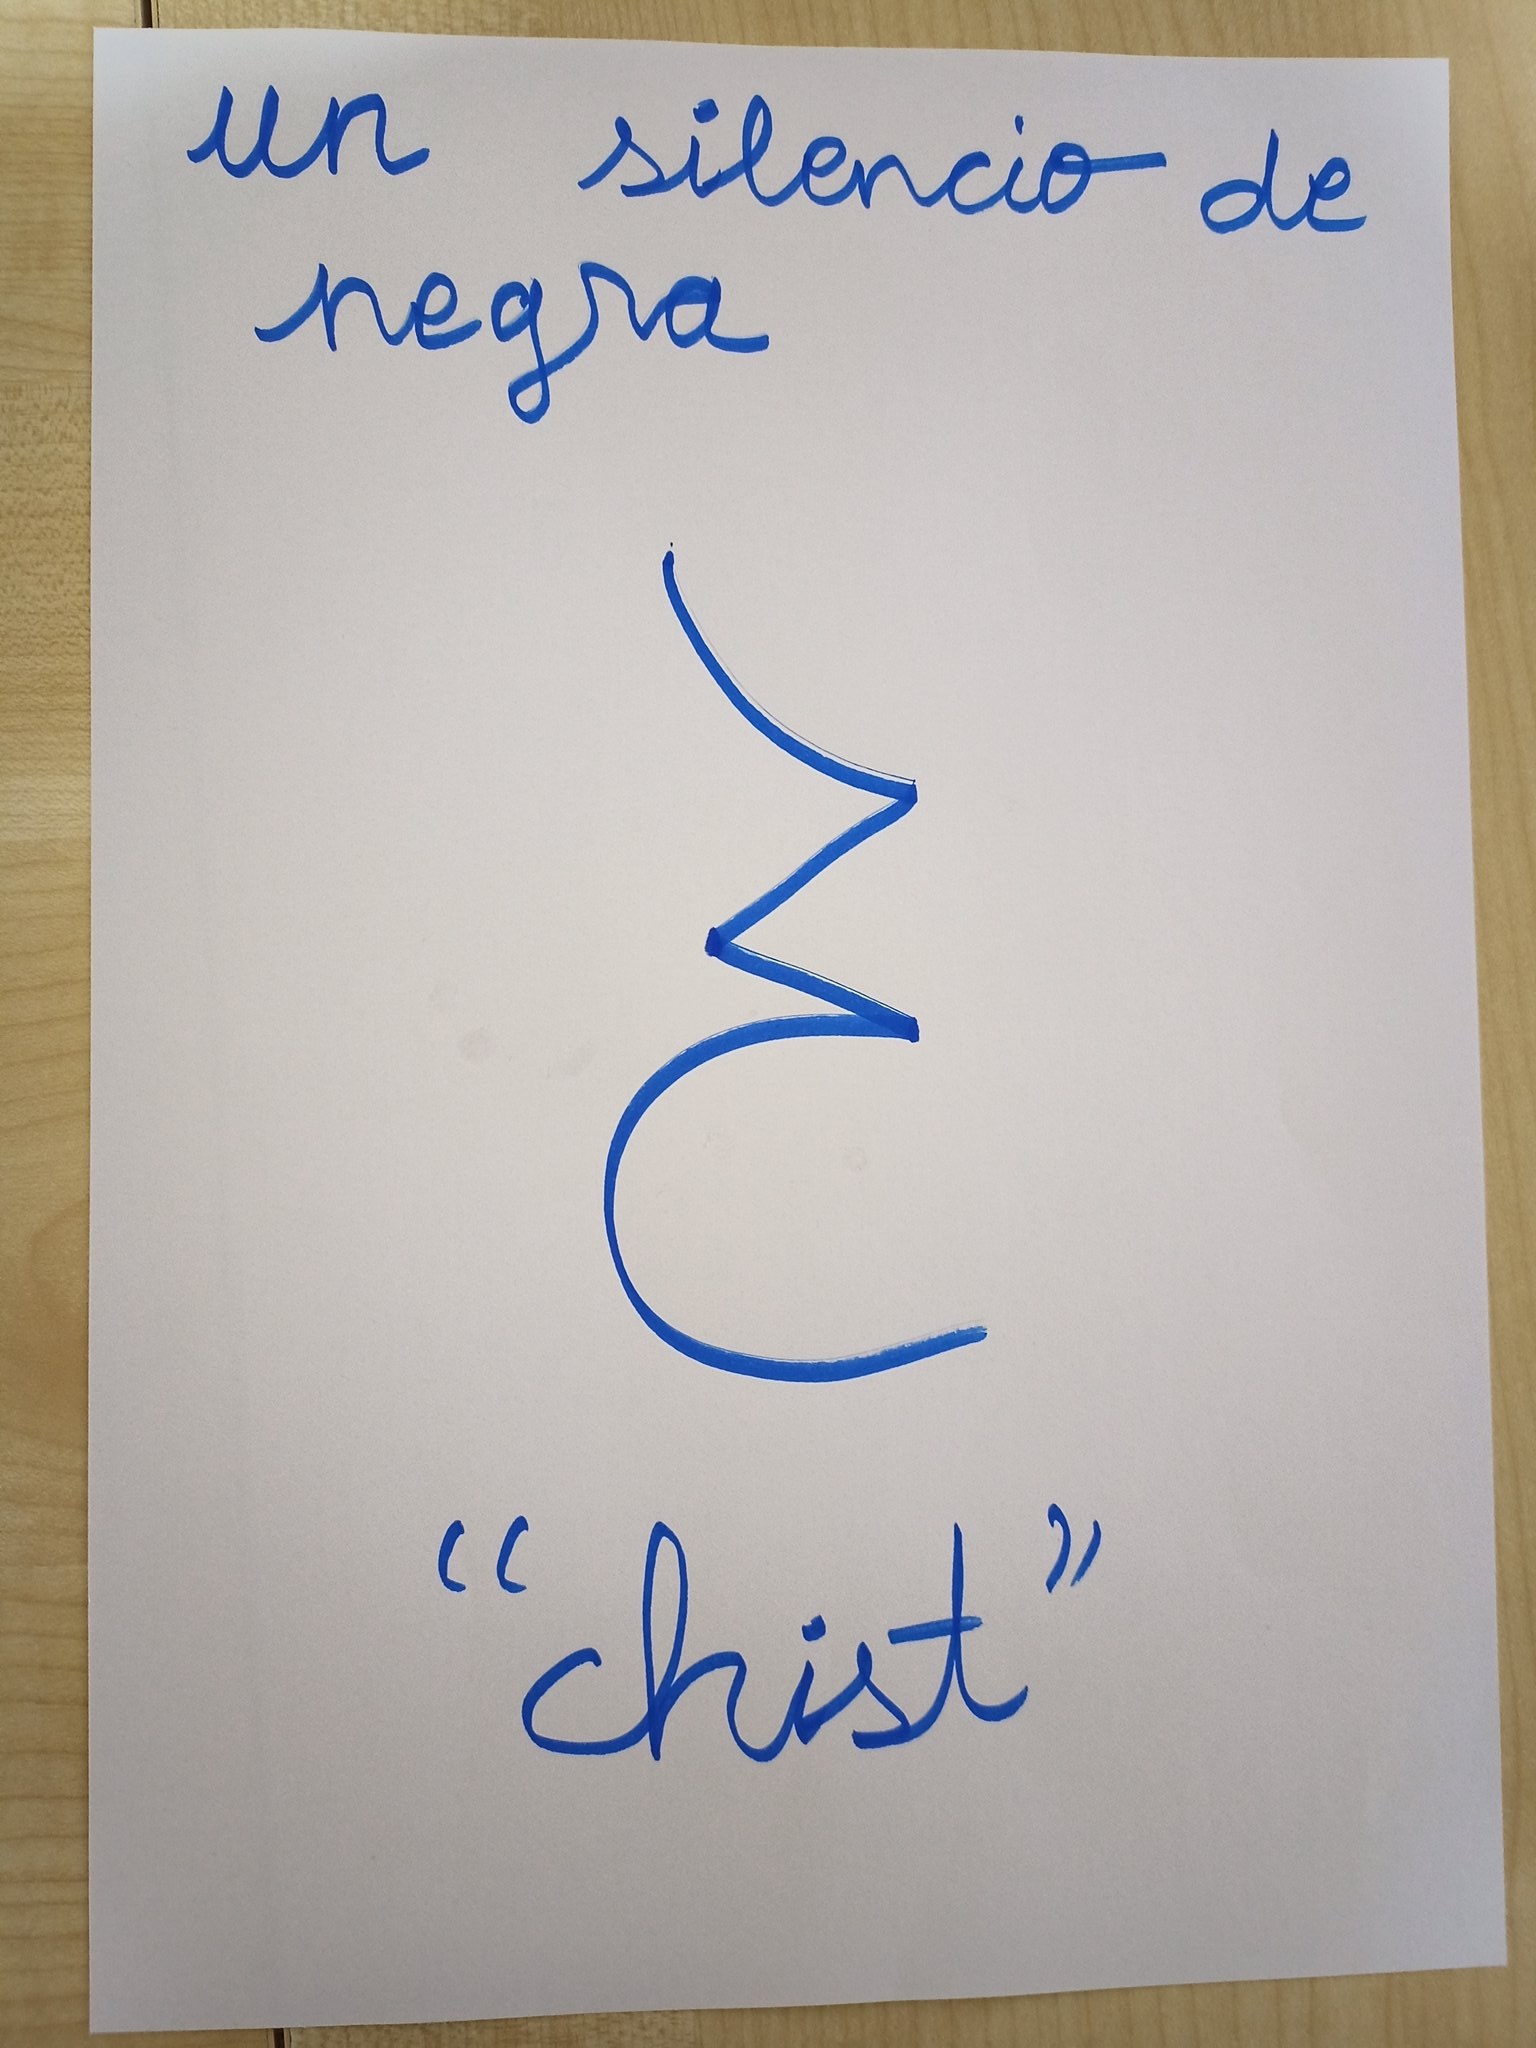 un silencio de
negra
“chist”